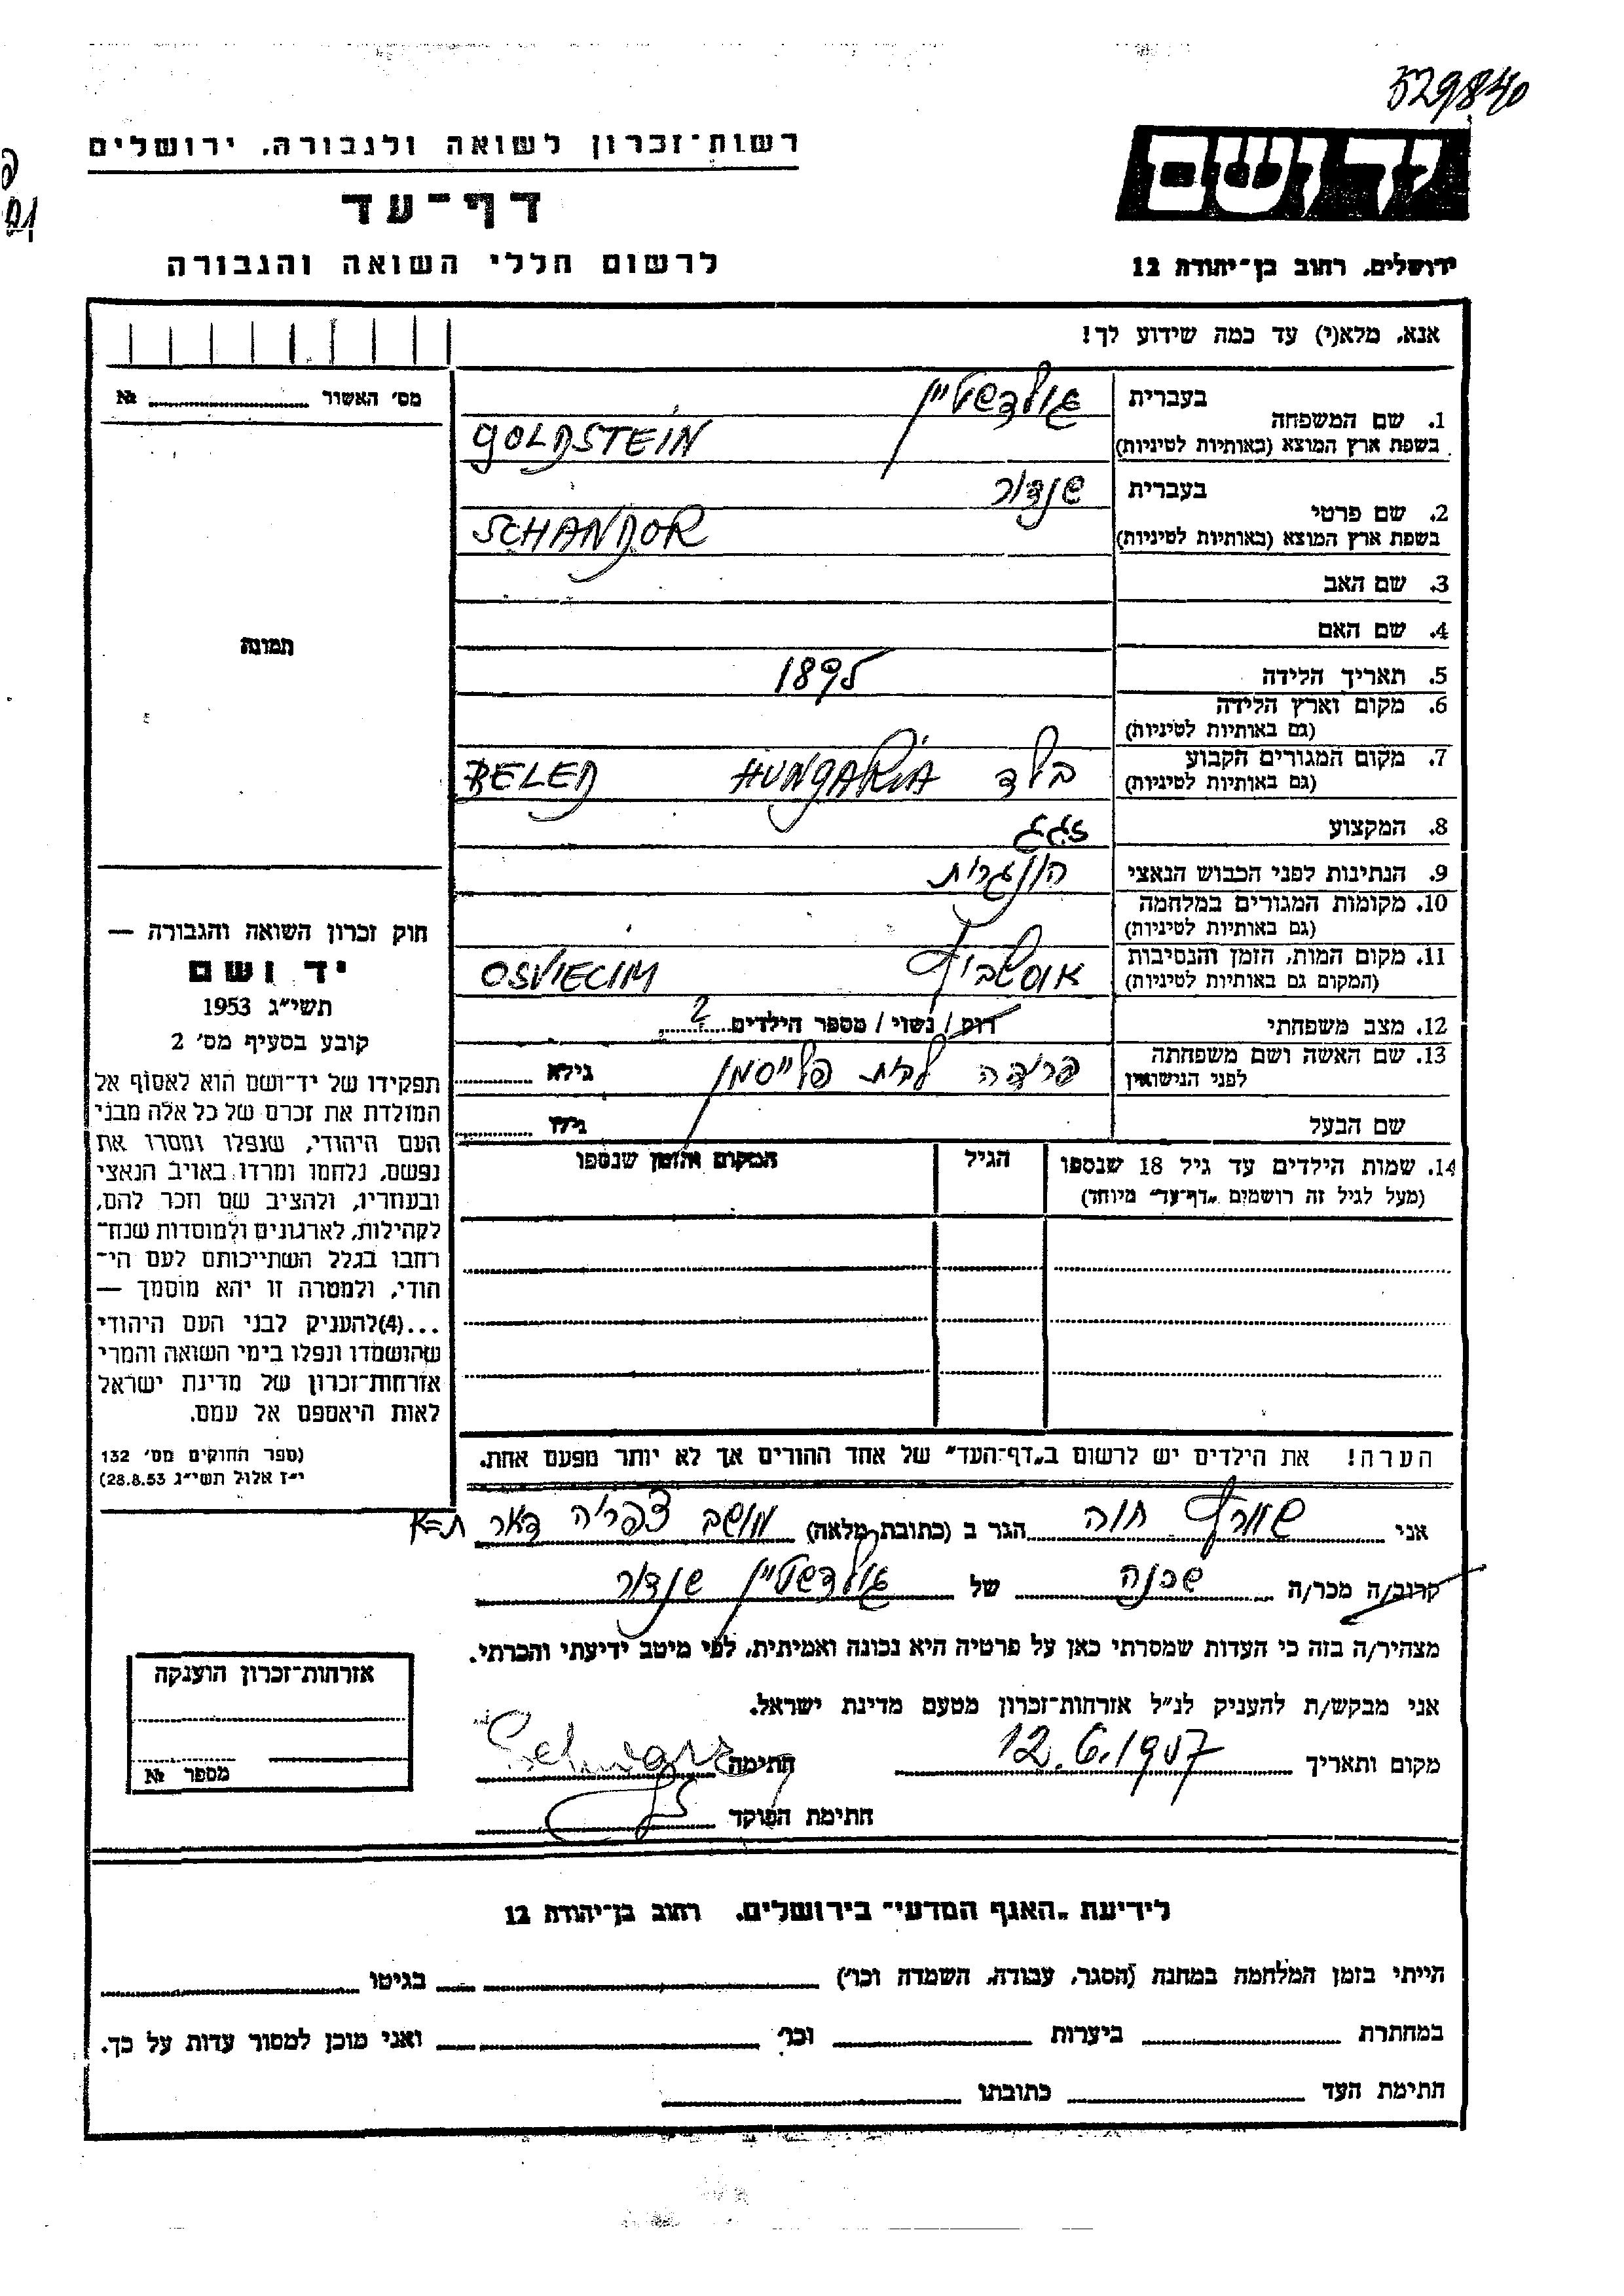 529840
רשות־זכרון לשואה ולגבורה, ירושלים
יד ושם
דף־עד
לרשום חללי השואה והגבורה
ירושלים, רחוב בן־יהודה 12
אנא, מלא(י) עד כמה שידוע לך!
מס׳ האשור № 
1. שם המשפחה
בעברית גולדשטיין
בשפת ארץ המוצא (באותיות לטיניות) GOLDSTEIN
2. שם פרטי
בעברית שנדור
בשפת ארץ המוצא (באותיות לטיניות) SCHANDOR
3. שם האב
4. שם האם
תמונה
5. תאריך הלידה 1895
6. מקום וארץ הלידה
(גם באותיות לטיניות)
7. מקום המגורים הקבוע
(גם באותיות לטיניות) בלד HUNGARIA BELED
8. המקצוע זגג
9. הנתינות לפני הכבוש הנאצי הונגרית
10. מקומות המגורים במלחמה
(גם באותיות לטיניות)
11. מקום המות, הזמן והנסיבות
(המקום גם באותיות לטיניות) אושביץ OSVIECIM
12. מצב משפחתי רוק / נשוי / מספר הילדים 2
13. שם האשה ושם משפחתה
לפני הנישואין פרידה לבית פלייסמן גילא
שם הבעל גילו
14. שמות הילדים עד גיל 18 שנספו
(מעל לגיל זה רושמים „דף־עד״ מיוחד)
הגיל
המקום והזמן שנספו
חוק זכרון השואה והגבורה —
יד ושם
תשי״ג 1953
קובע בסעיף מס׳ 2
תפקידו של יד־ושם הוא לאסוף אל
המולדת את זכרם של כל אלה מבני
העם היהודי, שנפלו ומסרו את
נפשם, נלחמו ומרדו באויב הנאצי
ובעוזריו, ולהציב שם וזכר להם,
לקהילות, לארגונים ולמוסדות שנח־
רחבו בגלל השתייכותם לעם הי־
הודי, ולמטרה זו יהא מוסמך —
...(4)להעניק לבני העם היהודי
שהושמדו ונפלו בימי השואה והמרי
אזרחות־זכרון של מדינת ישראל
לאות היאספם אל עמם.
(ספר החוקים מס׳ 132
י״ז אלול תשי״ג 28.8.53)
הערה! את הילדים יש לרשום ב„דף־העד״ של אחד ההורים אך לא יותר מפעם אחת.
אני שוורץ חוה הגר ב (כתובת מלאה) מושב צפריה דאר ת=א
קרוב/ה מכר/ה שכנה של גולדשטיין שנדור
מצהיר/ה בזה כי העדות שמסרתי כאן על פרטיה היא נכונה ואמיתית, לפי מיטב ידיעתי והכרתי.
אני מבקש/ת להעניק לנ״ל אזרחות־זכרון מטעם מדינת ישראל.
מקום ותאריך 12.6.1957 חתימה Schwarz
חתימת הפוקד
אזרחות־זכרון הוענקה
מספר №
לידיעת „האגף המדעי״ בירושלים, רחוב בן־יהודה 12
הייתי בזמן המלחמה במחנה (הסגר, עבודה, השמדה וכו׳) בגיטו
במחתרת ביערות וכו׳ ואני מוכן למסור עדות על כך.
חתימת העד כתובתו